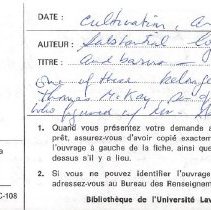 DATE : Cultivation, an
AUTEUR : Substantial
TITRE : and barns -
one of these belonge
Thomas McKay
who
1. Quand vous présentez votre demande a
prêt, assurez-vous d'avoir copié exactemen
l'ouvrage à gauche de la fiche, ainsi que
dessus s'il y a lieu.
2. Si vous ne pouvez identifier l'ouvrage
adressez-vous au Bureau des Renseignem
Bibliothèque de l'Université Lav
C-108